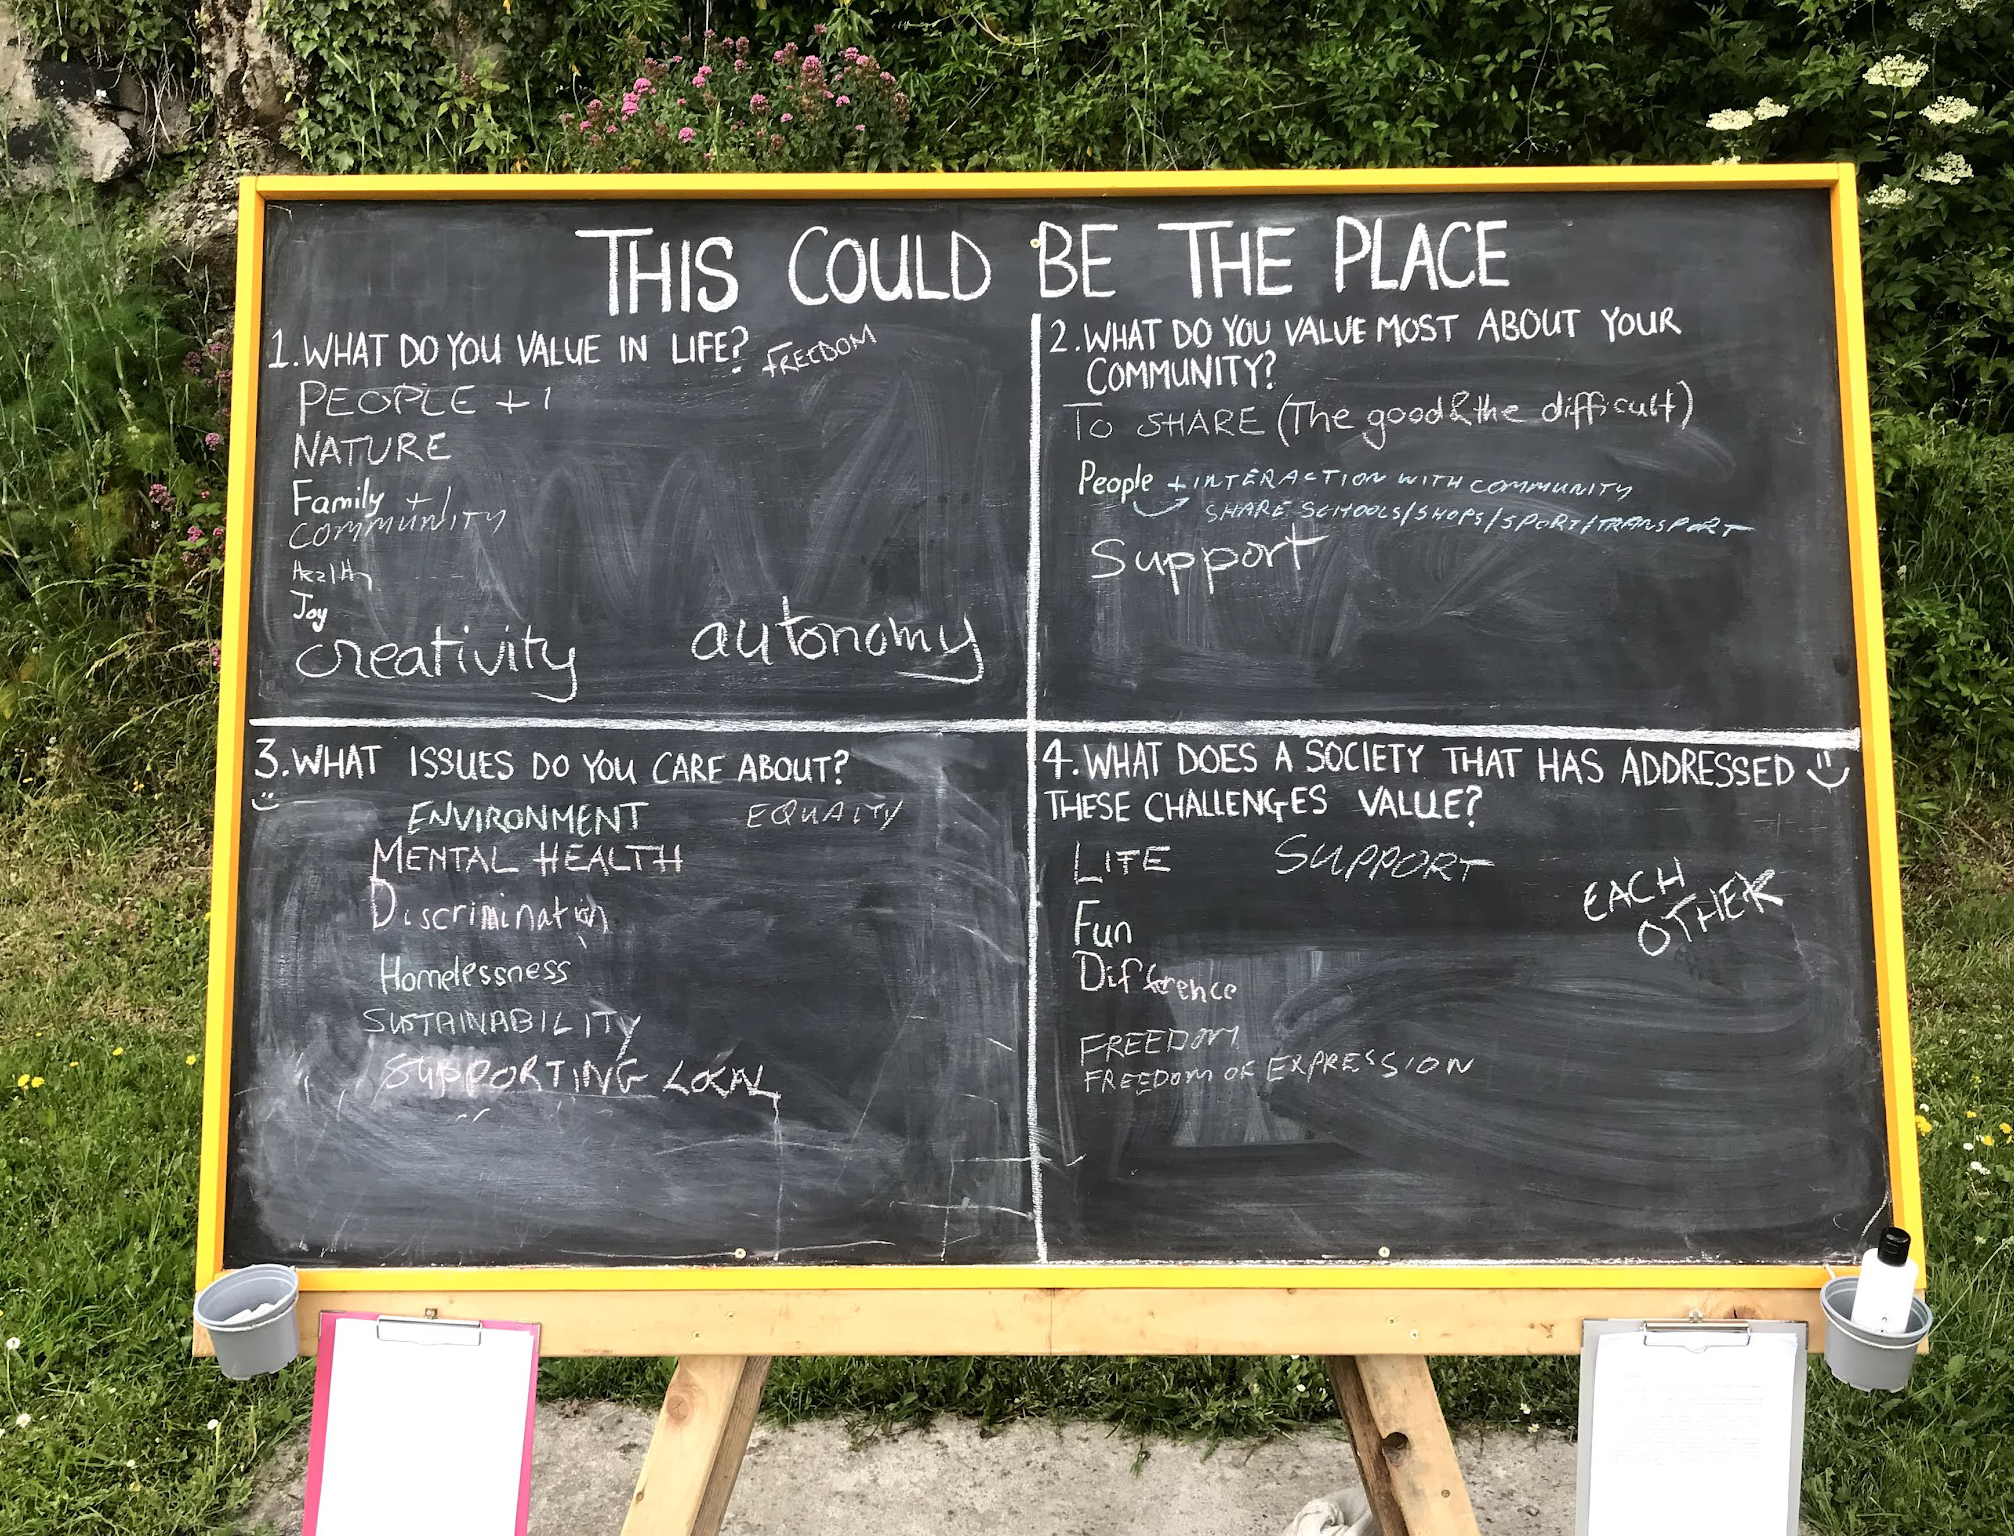 THIS COULD BE THE PLACE
1. WHAT DO YOU VALUE IN LIFE?
FREEDOM
PEOPLE +1
NATURE
Family +1
COMMUNITY
Health
Joy
creativity
autonomy
2. WHAT DO YOU VALUE MOST ABOUT YOUR
COMMUNITY?
To SHARE (The good & the difficult)
People + INTERACTION WITH COMMUNITY
SHARE SCHOOLS/SHOPS/SPORT/TRANSPORT
Support
3. WHAT ISSUES DO YOU CARE ABOUT?
ENVIRONMENT
EQUAITY
MENTAL HEALTH
Discrimination
Homelessness
SUSTAINABILITY
SUPPORTING LOCAL
4. WHAT DOES A SOCIETY THAT HAS ADDRESSED
THESE CHALLENGES VALUE?
LIFE
SUPPORT
EACH
OTHER
Fun
Difference
FREEDOM
FREEDOM OF EXPRESSION